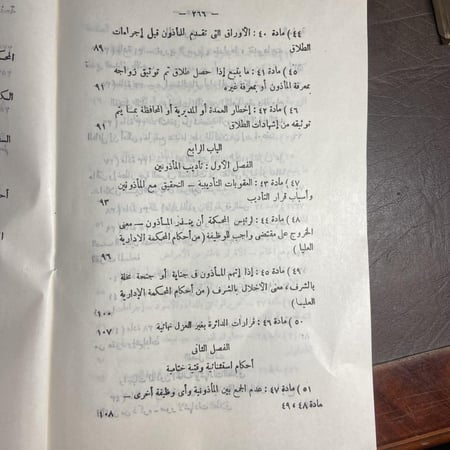 — ٢٦٦ —
٤٤) مادة ٤٠ : الأوراق التى تقديم المأذون قبل إجراءات
الطلاق ٨٩
٤٥) مادة ٤١ : ما يتبع إذا حصل طلاق تم توثيق زواجه
بمعرفة المأذون أو بمعرفة غيره ٩١
٤٦) مادة ٤٢ : إخطار العمدة أو المديرية أو المحافظة بما يتم
توثيقه من إشهادات الطلاق ٩١
الباب الرابع
الفصل الأول : تأديب المأذونين
٤٧) مادة ٤٣ : العقوبات التأديبية — التحقيق مع المأذونين
وأسباب قرار التأديب ٩٣
٤٨) مادة ٤٤ : لرئيس المحكمة أن ينذر المأذون — معنى
الخروج على مقتضى واجب الوظيفة ( من أحكام المحكمة الإدارية
العليا ) ٩٦
٤٩) مادة ٤٥ : إذا إتهم المأذون فى جناية أو جنحة مخلة
بالشرف ، معنى الاخلال بالشرف ( من أحكام المحكمة الإدارية
العليا ) ١٠٠
٥٠) مادة ٤٦ : قرارات الدائرة بغير العزل نهائية ١٠٧
الفصل الثانى
أحكام إستثنائية وقتية ختامية
٥١) مادة ٤٧ : عدم الجمع بين المأذونية وأى وظيفة أخرى —
مادة ٤٨ ، ٤٩ ١٠٨